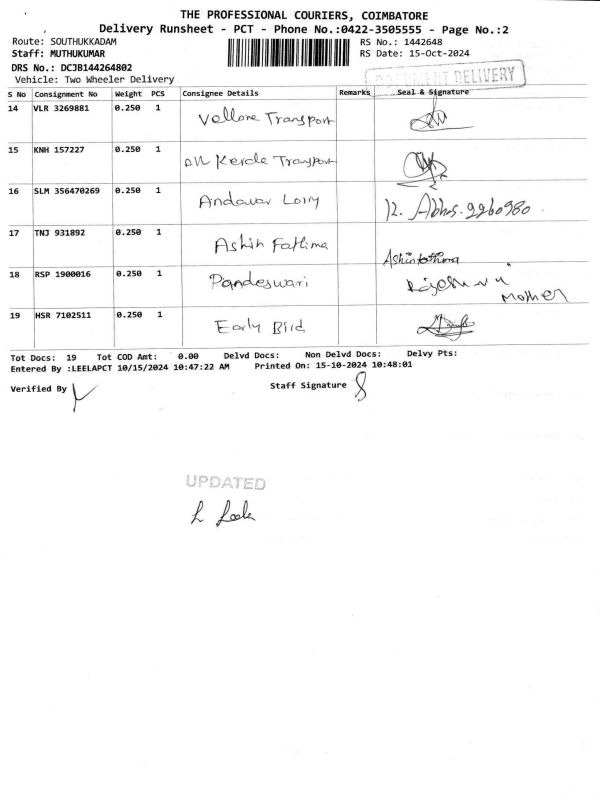 THE PROFESSIONAL COURIERS, COIMBATORE
Delivery Runsheet - PCT - Phone No.:0422-3505555 - Page No.:2
Route: SOUTHUKKADAM RS No.: 1442648
Staff: MUTHUKUMAR RS Date: 15-Oct-2024
DRS No.: DCJB144264802
Vehicle: Two Wheeler Delivery
DOCUMENT DELIVERY
S No Consignment No Weight PCS Consignee Details Remarks Seal & Signature
14 VLR 3269881 0.250 1 Vellore Transport
15 KNH 157227 0.250 1 Kerala Transport
16 SLM 356470269 0.250 1 Andavar Lorry
17 TNJ 931892 0.250 1 Ashin Fathima Ashinfathima
18 RSP 1900016 0.250 1 Pandeswari
Mother
19 HSR 7102511 0.250 1 Early Bird
Tot Docs: 19 Tot COD Amt: 0.00 Delvd Docs: Non Delvd Docs: Delvy Pts:
Entered By :LEELAPCT 10/15/2024 10:47:22 AM Printed On: 15-10-2024 10:48:01
Verified By Staff Signature
UPDATED